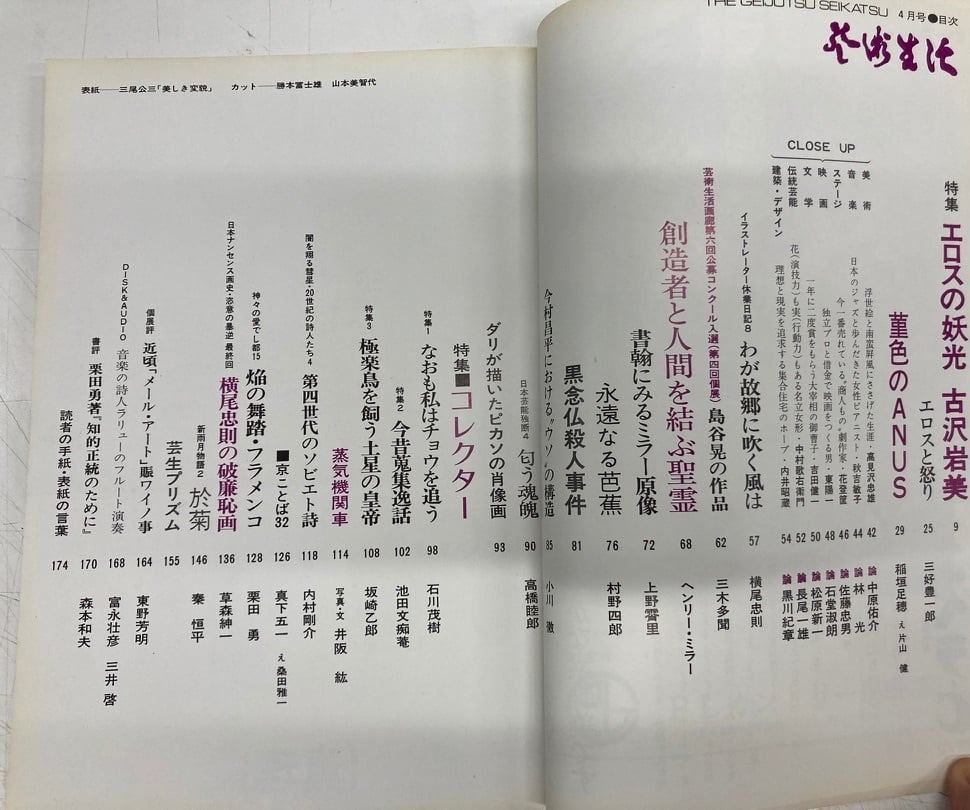 THE GEIJUTSU SEIKATSU 4月号●目次
芸術生活
特集 エロスの妖光 古沢岩美 9
エロスと怒り 25 三好豊一郎
菫色のANUS 29 稲垣足穂 え 片山 健
CLOSE UP
美術 浮世絵と南蛮屏風にささげた生涯・高見沢忠雄 42 論 中原佑介
音楽 日本のジャズと歩んだきた女性ピアニスト・秋吉敏子 44 論 林 光
ステージ 今一番売れている“商人もの”劇作家・花登筺 46 論 佐藤忠男
映画 独立プロと借金で映画をつくる男・東陽一 48 論 石堂淑朗
文学 一年に二度賞をもらう大宰相の御曹子・吉田健一 50 論 松原新一
伝統芸能 花(演技力)も実(行動力)もある名立女形・中村歌右衛門 52 論 長尾一雄
建築・デザイン 理想と現実を追求する集合住宅のホープ・内井昭蔵 54 論 黒川紀章
イラストレーター休業日記8 わが故郷に吹く風は 57 横尾忠則
芸術生活画廊第六回公募コンクール入選(第四回個展) 島谷晃の作品 62 三木多聞
創造者と人間を結ぶ聖霊 68 ヘンリー・ミラー
書翰にみるミラー原像 72 上野霄里
永遠なる芭蕉 76 村野四郎
黒念仏殺人事件 81
今村昌平における“ウソ”の構造 85 小川 徹
日本芸能独断4 匂う魂魄 90 高橋睦郎
ダリが描いたピカソの肖像画 93
特集■コレクター
特集1 なおも私はチョウを追う 98 石川茂樹
特集2 今昔蒐集逸話 102 池田文痴菴
特集3 極楽鳥を飼う土星の皇帝 108 坂崎乙郎
蒸気機関車 114 写真・文 井阪 紘
闇を翔る彗星・20世紀の詩人たち4 第四世代のソビエト詩 118 内村剛介
■京ことば32 126 真下五一 え 桑田雅一
神々の愛でし都15 焔の舞踏・フラメンコ 128 栗田 勇
日本ナンセンス画史・恣意の暴逆 最終回 横尾忠則の破廉恥画 136 草森紳一
新雨月物語2 於菊 146 秦 恒平
芸生プリズム 155
個展評 近頃「メール・アート」賑ワイノ事 164 東野芳明
DISK&AUDIO 音楽の詩人ラリューのフルート演奏 168 富永壮彦 三井 啓
書評 栗田勇著『知的正統のために』 170 森本和夫
読者の手紙・表紙の言葉 174
表紙──三尾公三「美しき変貌」 カット──勝本冨士雄 山本美智代